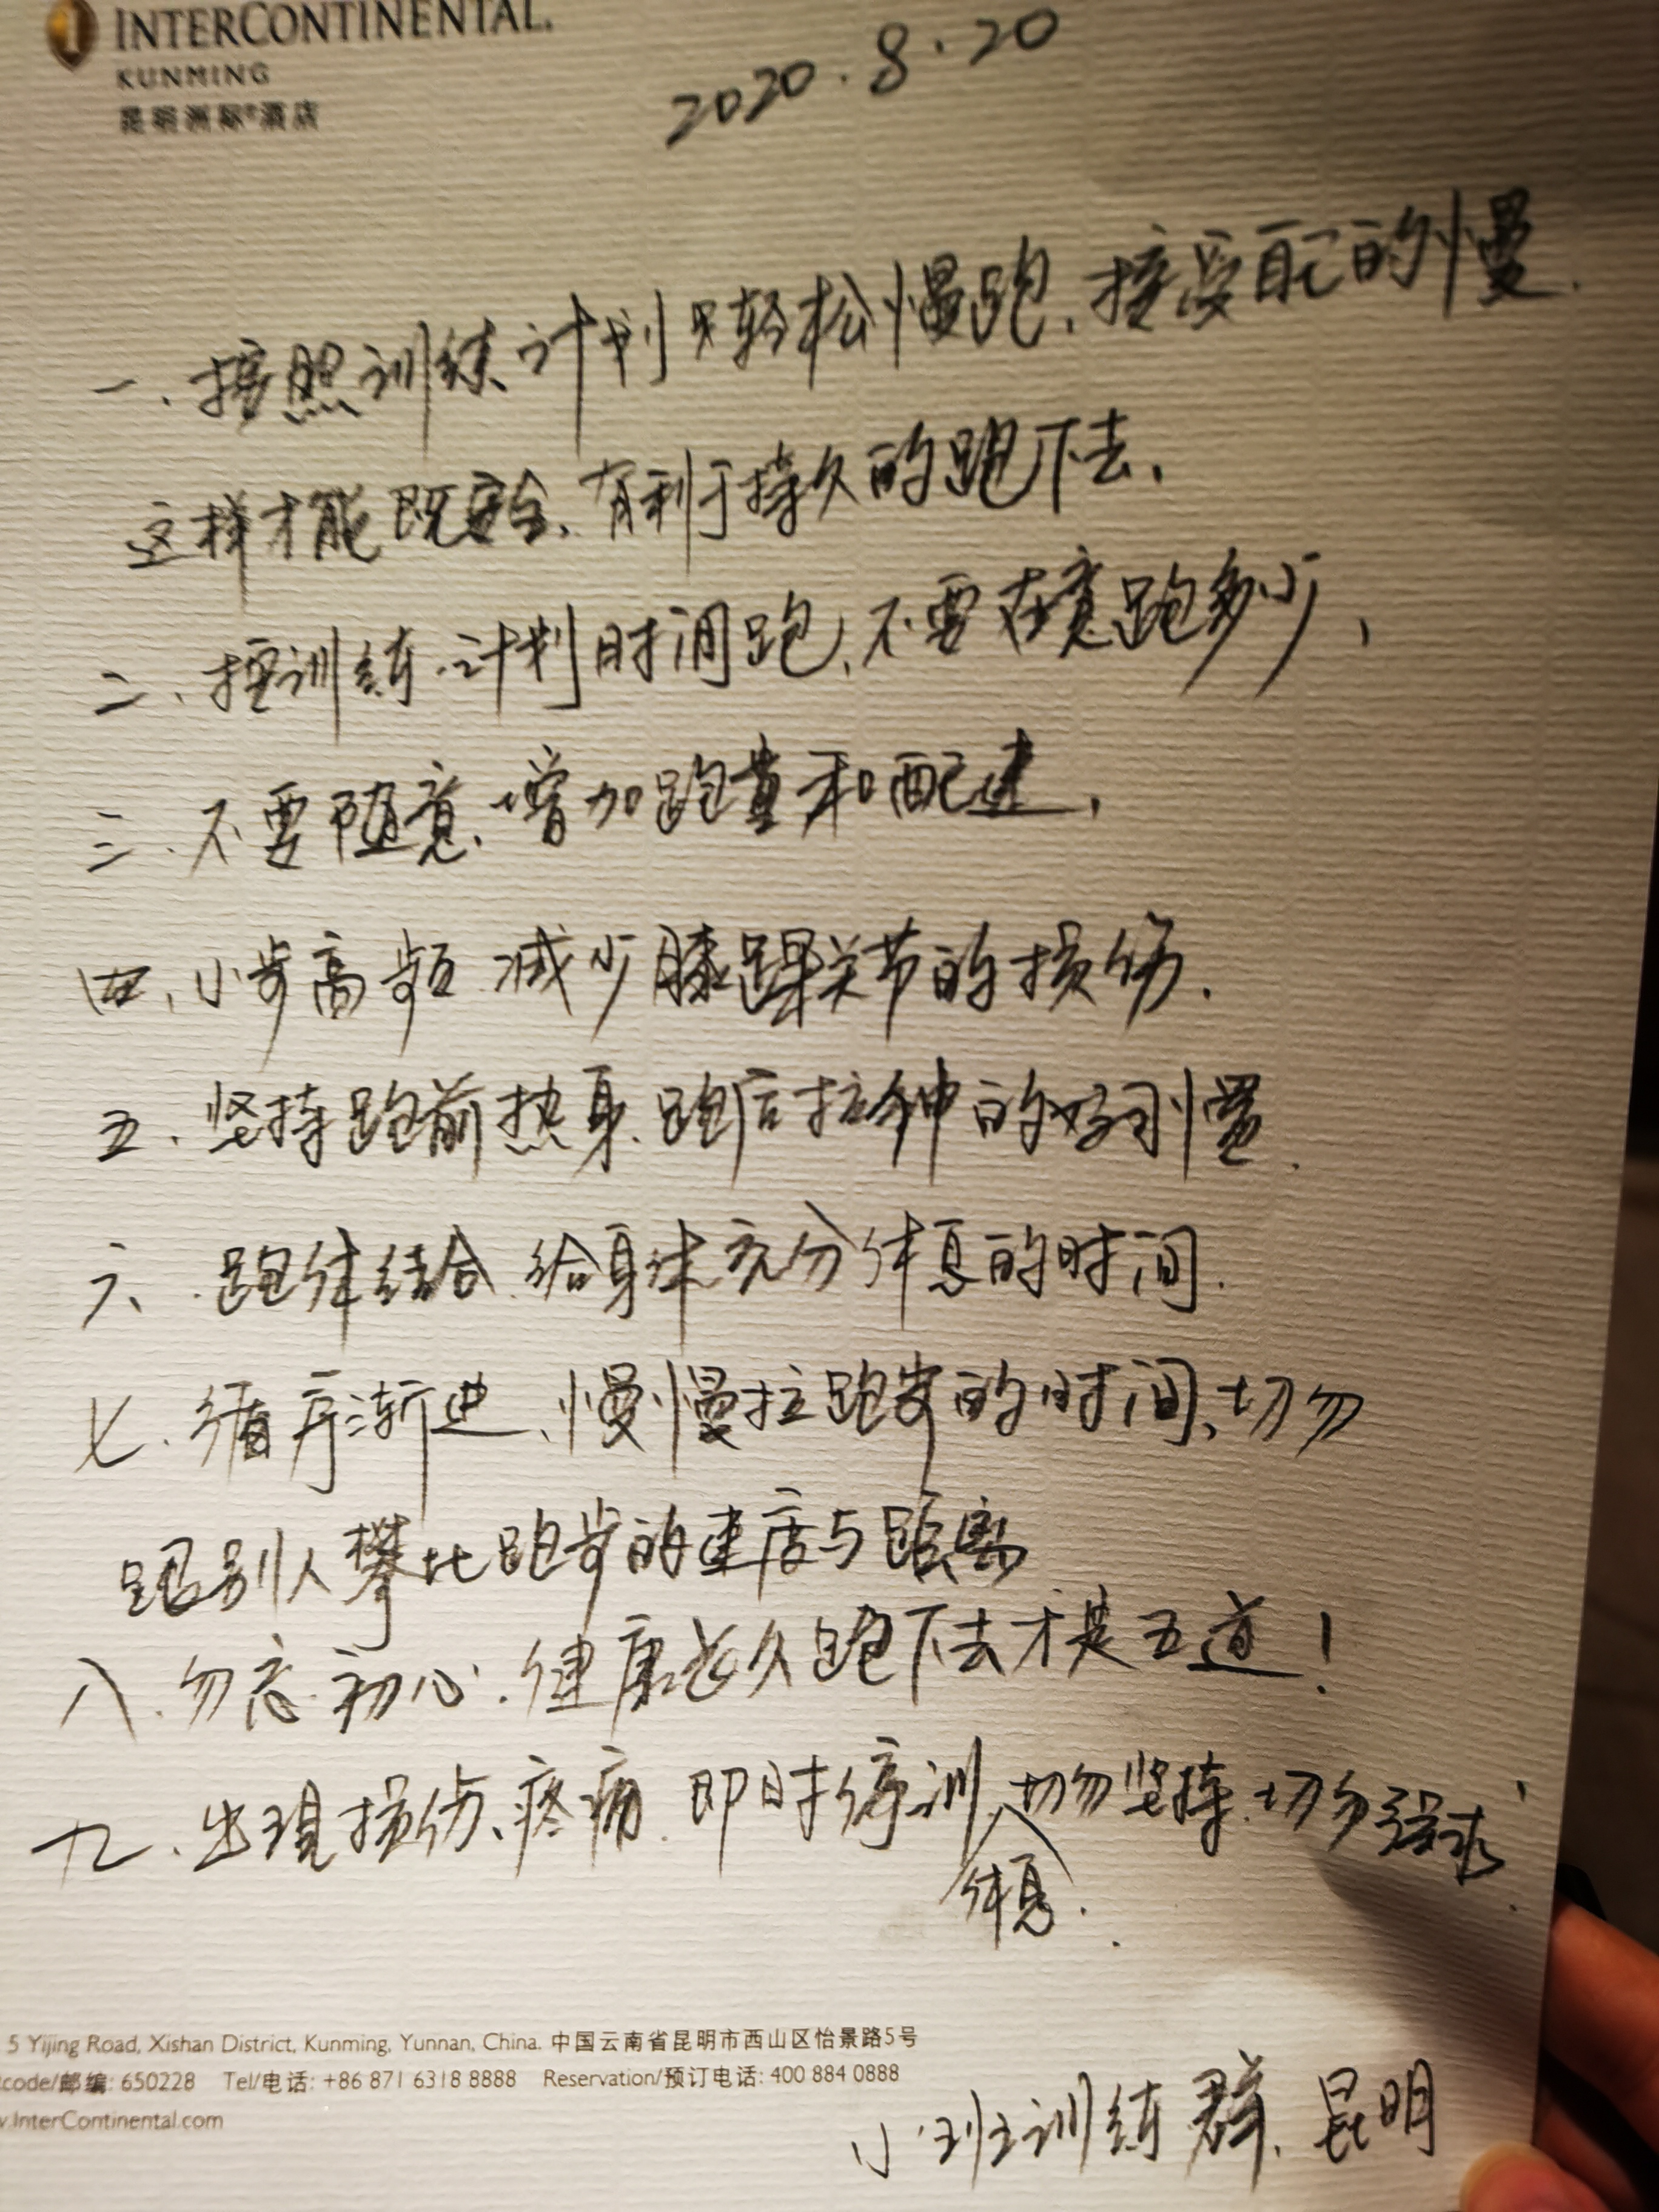 INTERCONTINENTAL.
KUNMING
昆明洲际®酒店
2020.8.20
一、按照训练计划只轻松慢跑、接受自己的慢.
这样才能既安全、有利于持久的跑下去、
二、按训练计划时间跑、不要在意跑多少、
三、不要随意、增加跑量和配速、
四、小步高频 减少膝踝关节的损伤.
五、坚持跑前热身、跑后拉伸的好习惯.
六、跑休结合、给身体充分休息的时间.
七、循序渐进、慢慢拉跑步的时间、切勿
跟别人攀比跑步的速度与距离
八、勿忘初心.健康长久跑下去才是王道!
九、出现损伤、疼痛.即时停训、切勿坚持.切勿强求
休息.
5 Yijing Road, Xishan District, Kunming, Yunnan, China. 中国云南省昆明市西山区怡景路5号
code/邮编: 650228 Tel/电话: +86 871 6318 8888 Reservation/预订电话: 400 884 0888
.InterContinental.com
小班训练群、昆明